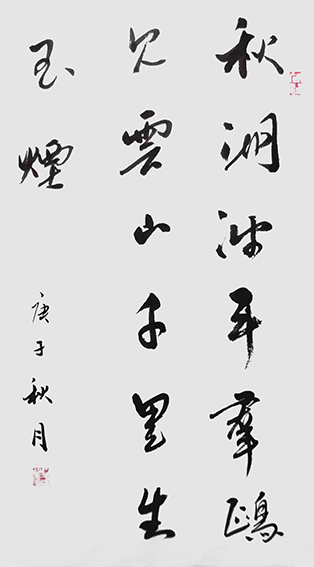 秋湖波平羣鷗
見雲山千里生
玉煙
庚子秋月